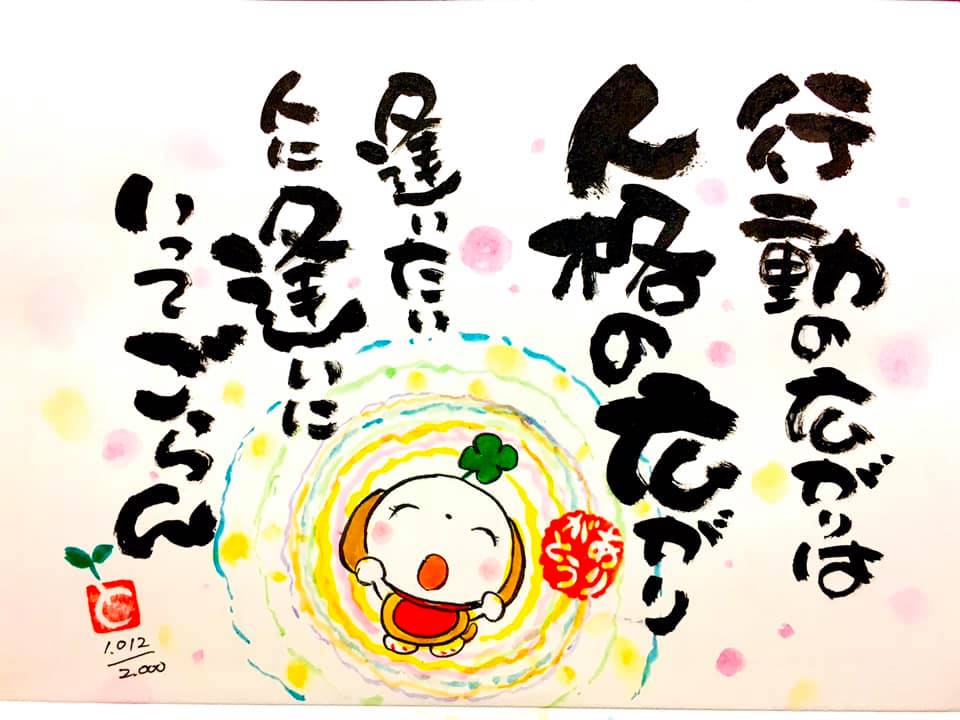 行動の広がりは
人格の広がり
逢いたい
人に逢いに
いってごらん
ありがとう
1.012
2.000